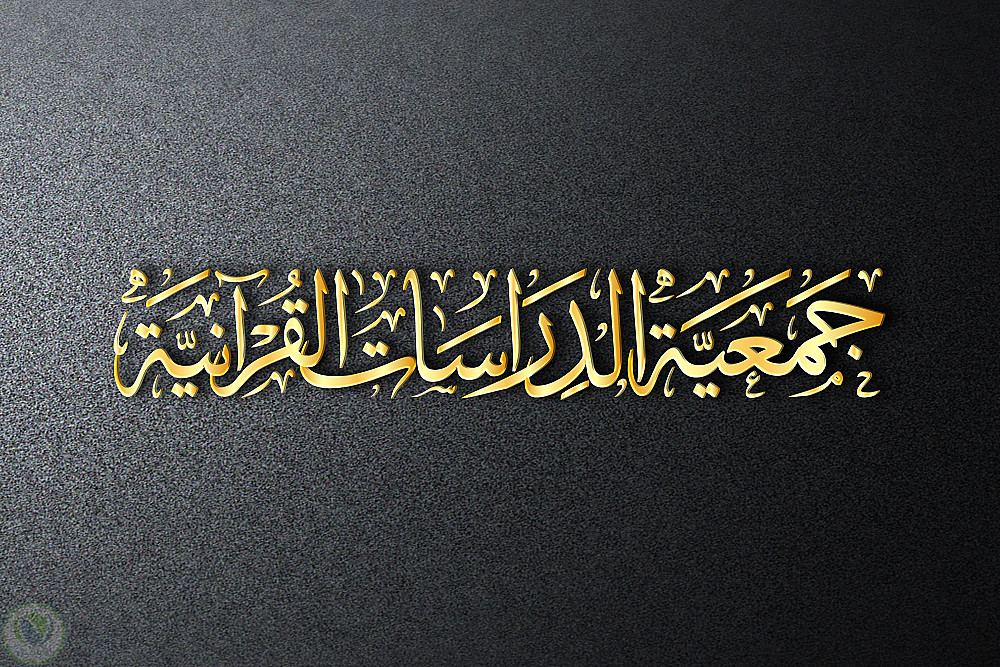 جَمَعِيَّة الدِرَاسَات القُرْآنِيَّة